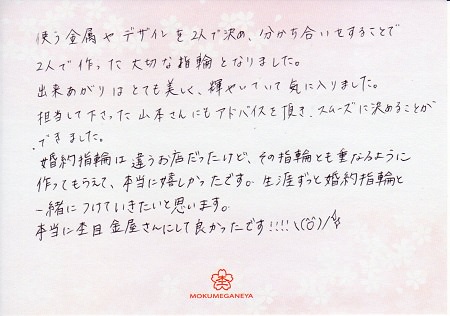 使う金属やデザインを2人で決め、分かち合いをすることで
2人で作った大切な指輪となりました。
出来あがりはとても美しく、輝やいていて気に入りました。
担当して下さった山本さんにもアドバイスを頂き、スムーズに決めることが
できました。
婚約指輪は違うお店だったけど、その指輪とも重なるように
作ってもらえて、本当に嬉しかったです。生涯ずっと婚約指輪と
一緒につけていきたいと思います。
本当に杢目金屋さんにして良かったです!!!!\(^o^)/
MOKUMEGANEYA